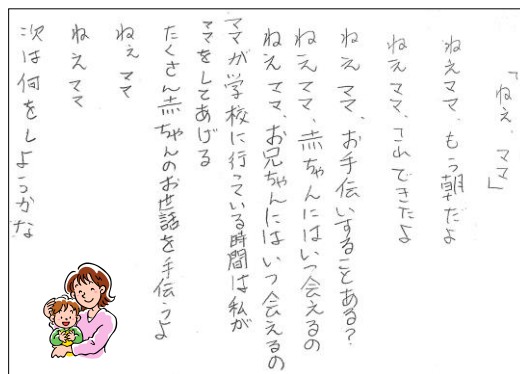 「ねえ、ママ」
ねえママ、もう朝だよ
ねえママ、これできたよ
ねえママ、お手伝いすることある?
ねえママ、赤ちゃんにはいつ会えるの
ねえママ、お兄ちゃんにはいつ会えるの
ママが学校に行っている時間は私が
ママをしてあげる
たくさん赤ちゃんのお世話を手伝うよ
ねえママ
ねえママ
次は何をしようかな